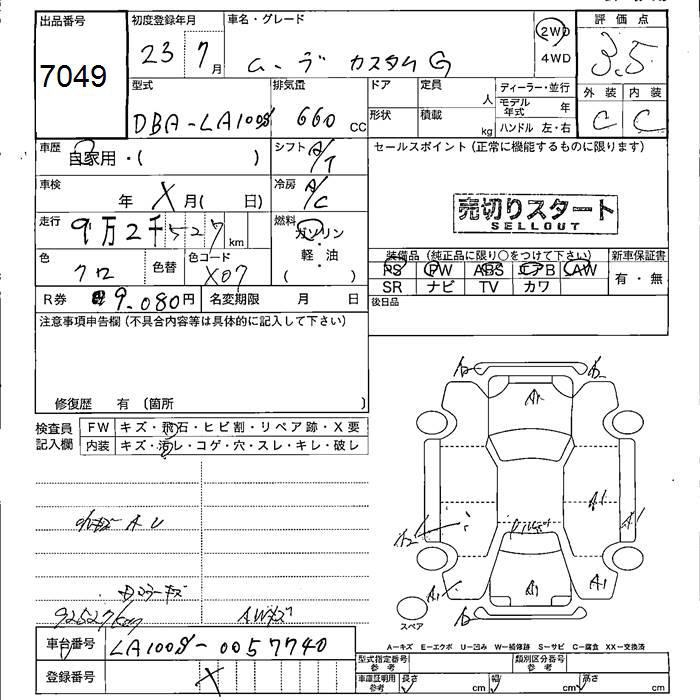 出品番号
7049
初度登録年月
23 7月
車名・グレード
ムーヴ カスタムG
2WD
4WD
評価点
3.5
外装 内装
C C
型式
DBA-LA100S
排気量
660 CC
ドア
定員
人
形状
積載
kg
ディーラー・並行
モデル年式 年
ハンドル 左・右
車歴
自家用・( )
シフト A/T
セールスポイント(正常に機能するものに限ります)
車検
年 X月( 日)
冷房 A/C
売切りスタート
SELLOUT
走行
9万2千527km
燃料
ガソリン
・
軽・油
( )
色
クロ
色替
色コード
X07
装備品(純正品に限り○をつけて下さい)
PS PW ABS エアB AW
SR ナビ TV カワ
新車保証書
有・無
R券 9.080円
名変期限 月 日
後日品
注意事項申告欄(不具合内容等は具体的に記入して下さい)
修復歴 有〔箇所 〕
検査員記入欄
FW キズ・飛石・ヒビ割・リペア跡・X要
内装 キズ・汚レ・コゲ・穴・スレ・キレ・破レ
A2
A1
A1
A1
A2
A1
A1
A1
92527km
AWキズ
スペア
車台番号 LA100S-0057740
登録番号 X
A−キズ E−エクボ U−凹み W−補修跡 S−サビ C−腐食 XX−交換済
型式指定番号 参考
類別区分番号 参考
車庫証明用 参考
長さ cm
幅 cm
高さ cm